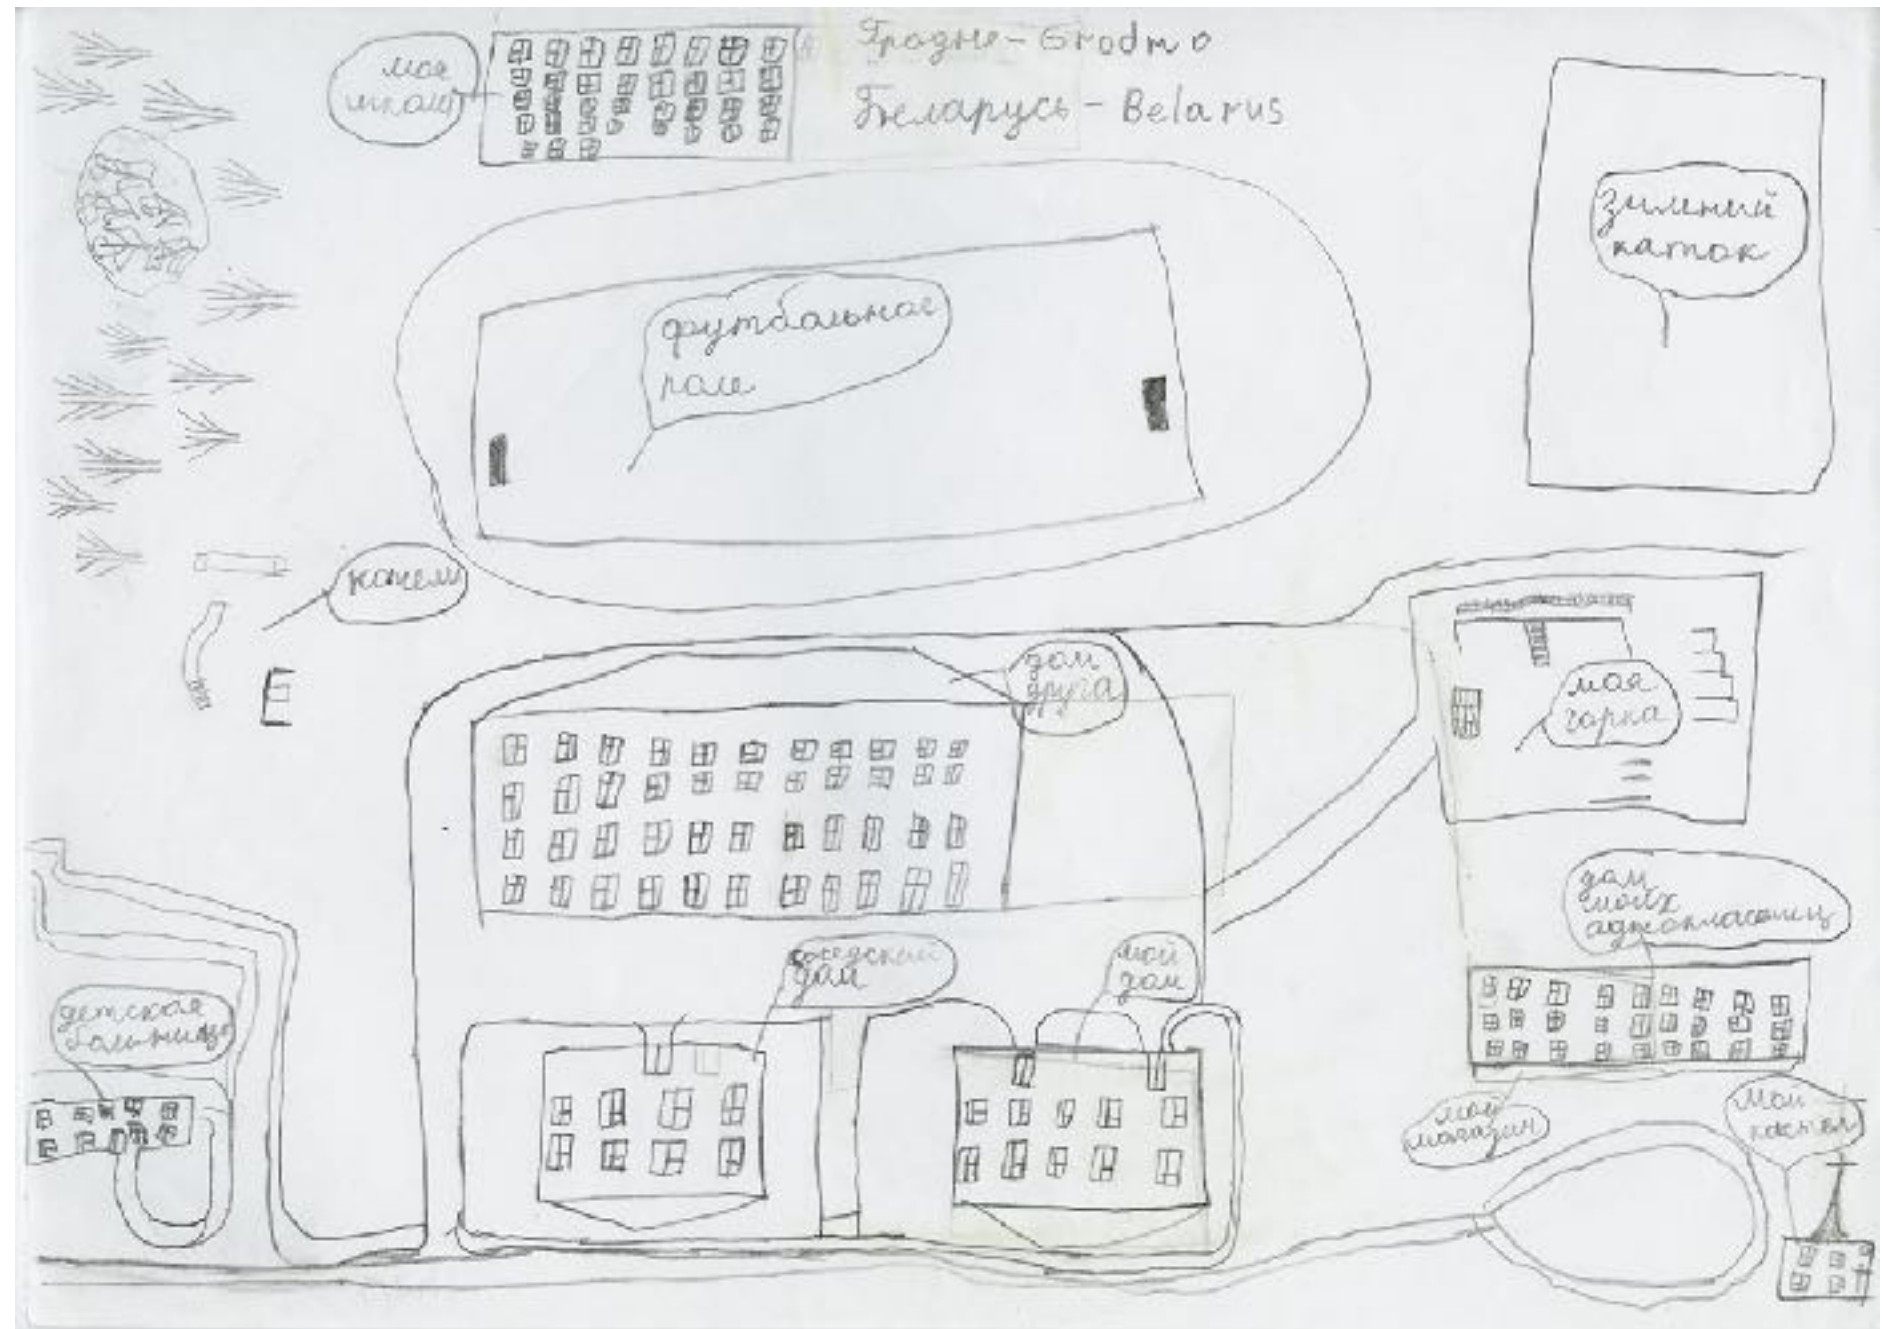 моя
школа
Гродне - Grodno
Беларусь - Belarus
зимний
каток
футбольное
поле
качели
дом
друга
моя
горка
дом
моих
соседский
дом
мой
дом
детская
больница
мой
магазин
мой
костел